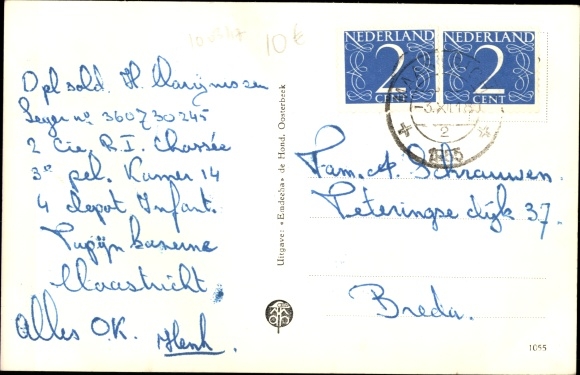 10 €
Dpl sold. H. Marijnissen
Leger no 360730245
2 Cie R.I. Chassée
3e pel. Kamer 14
4 depot Infant.
Tapijn kazerne
Maastricht.
Alles O.K. Henk.
Uitgave: «Emdeeha» de Hond, Oosterbeek
NEDERLAND
2
CENT
NEDERLAND
2
CENT
Fam. A. Schrauwen.
Teteringse dijk 37.
Breda.
1055